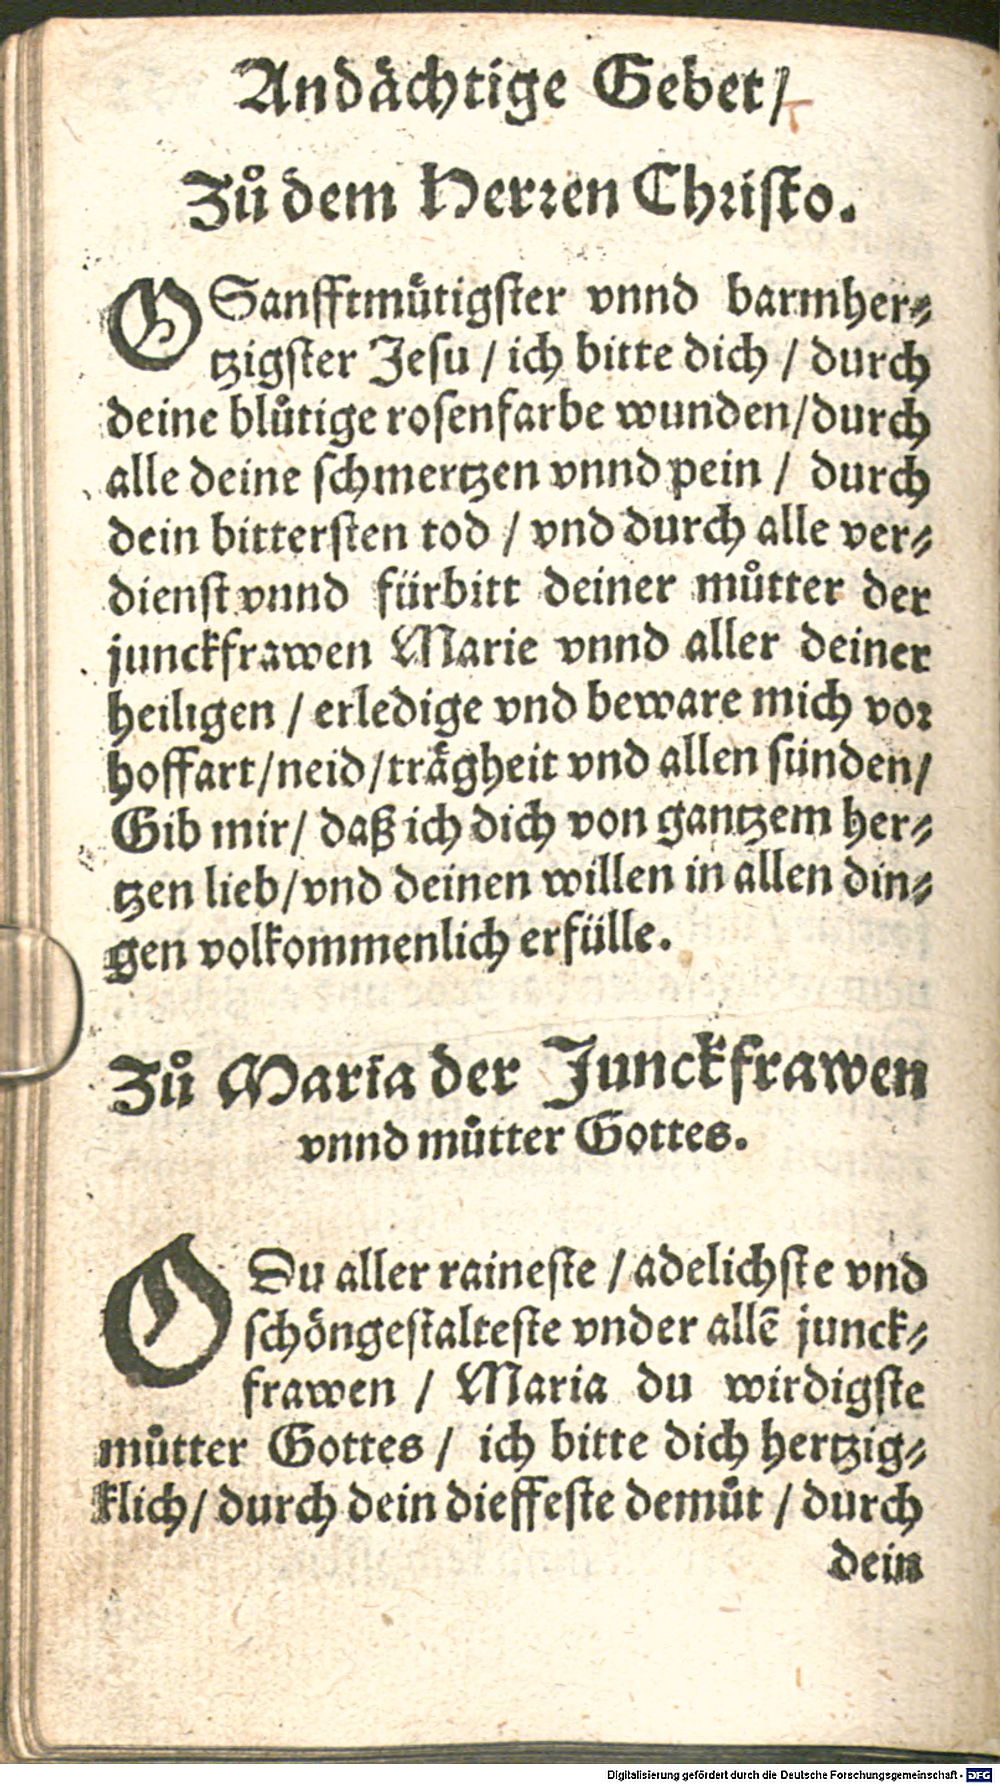 Andächtige Gebet/
Zů dem Herꝛen Chꝛiſto.
O Sanfftmůtigſter vnnd barmher⸗
tzigſter Jeſu / ich bitte dich / durch
deine blůtige roſenfarbe wunden/durch
alle deine ſchmertzen vnnd pein / durch
dein bitterſten tod / vnd durch alle ver⸗
dienſt vnnd fürbitt deiner můtter der
junckfrawen Marie vnnd aller deiner
heiligen / erledige vnd beware mich voꝛ
hoffart/neid/trägheit vnd allen ſünden/
Gib mir/ daß ich dich von gantzem her⸗
tzen lieb/vnd deinen willen in allen din⸗
gen volkommenlich erfülle.
Zů Maria der Junckfrawen
vnnd můtter Gottes.
O Du aller raineſte / adelichſte vnd
ſchöngeſtalteſte vnder allē junck⸗
frawen / Maria du wirdigſte
můtter Gottes / ich bitte dich hertzig⸗
klich/ durch dein dieffeſte demůt / durch
dein
Digitalisierung gefördert durch die Deutsche Forschungsgemeinschaft - DFG